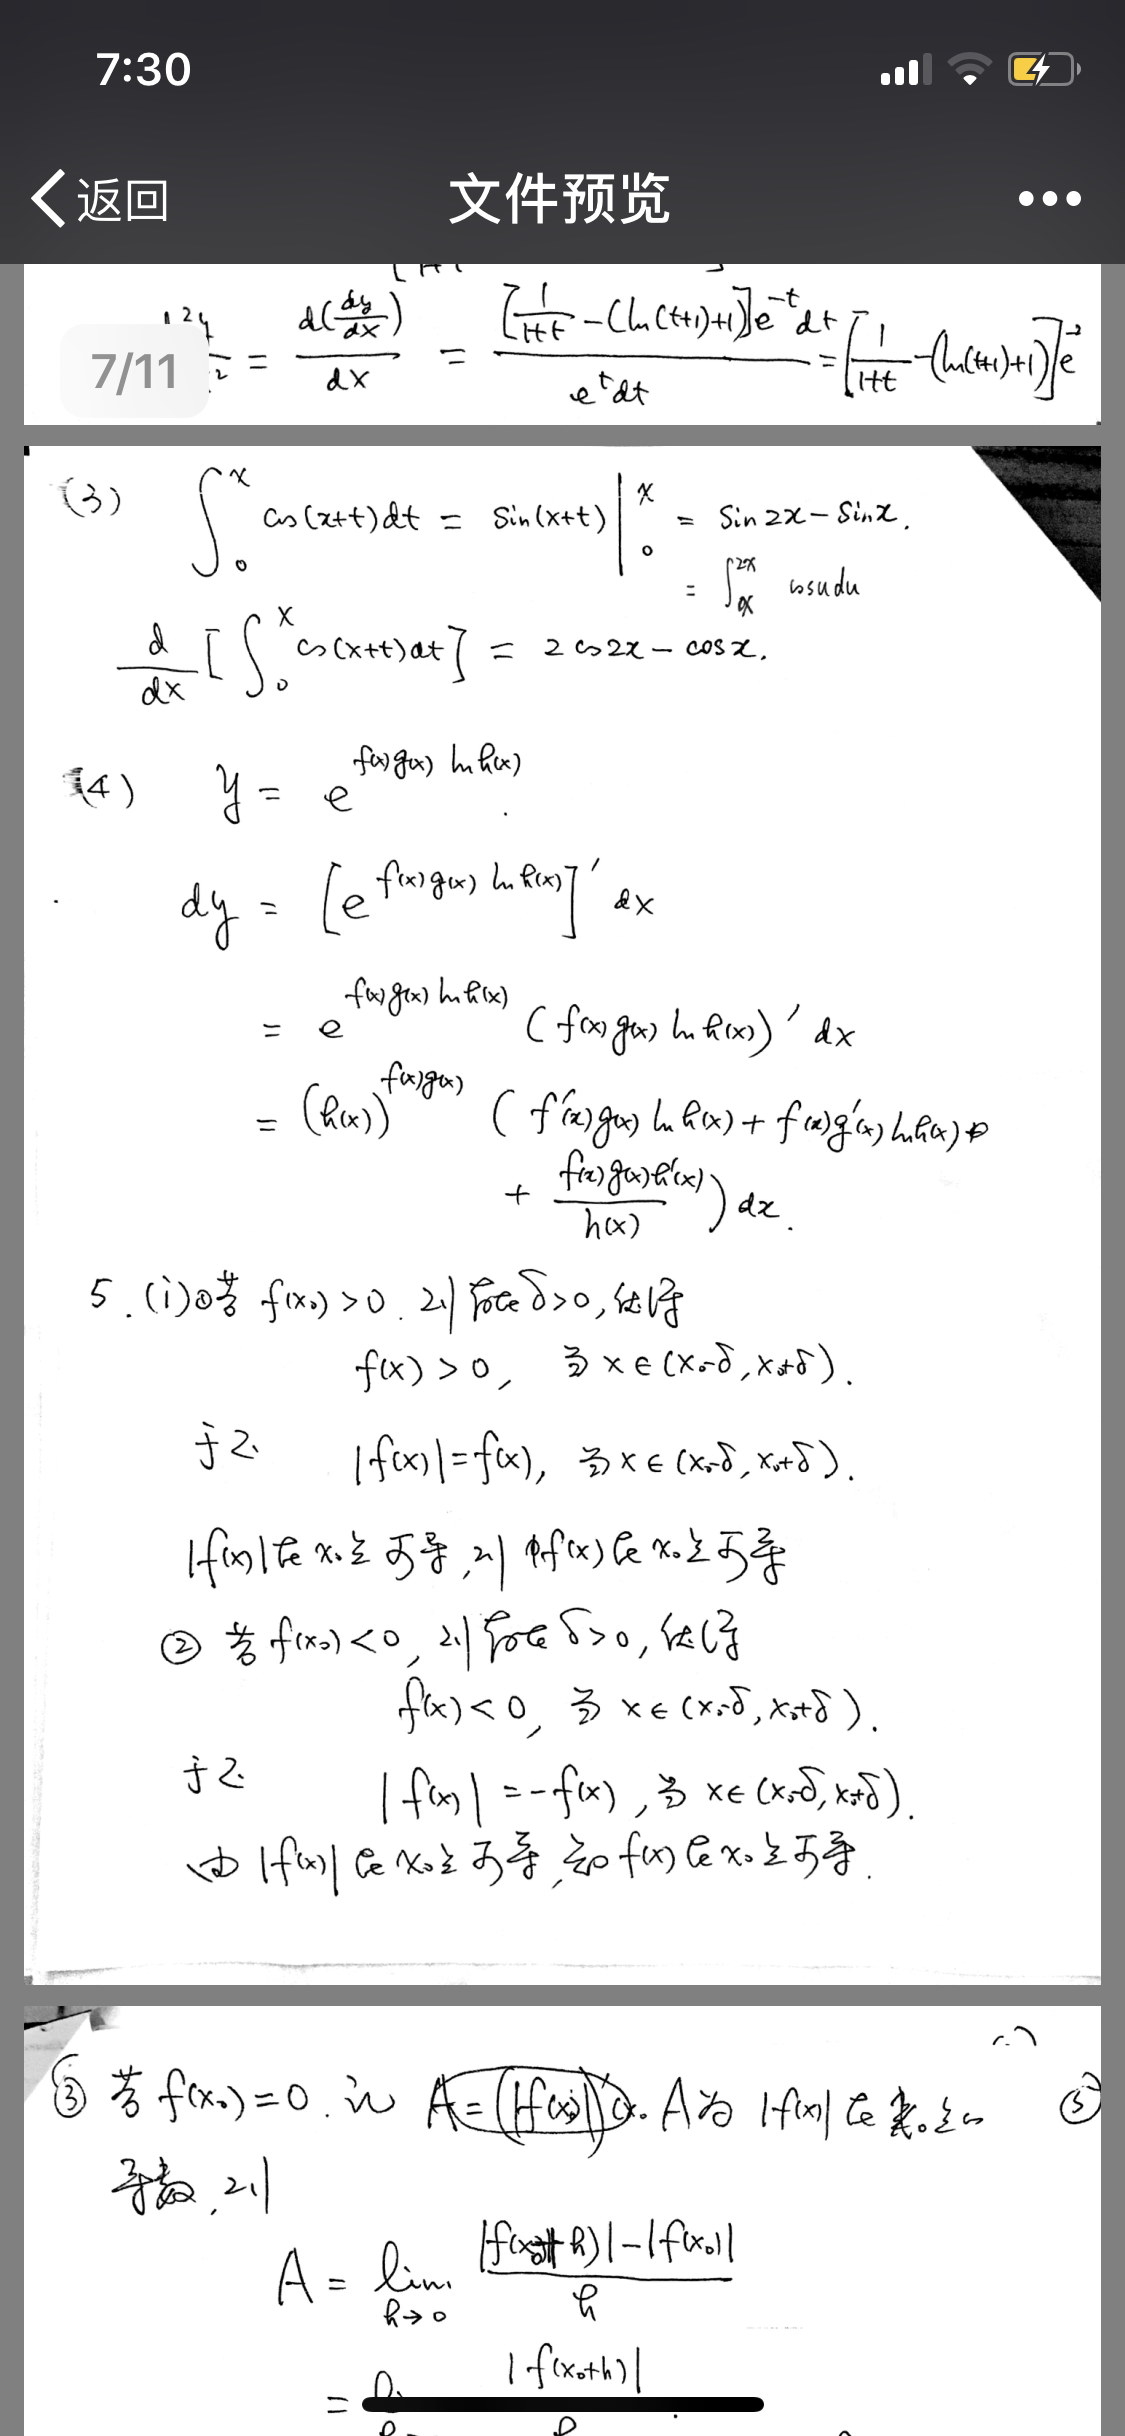 7:30
返回 文件预览
7/11
= d(dy/dx)/dx = [1/(1+t) - (ln(t+1)+1)]e^{-t}dt / e^t dt = [1/(1+t) - (ln(t+1)+1)]e^{-2
(3) ∫_0^x cos(x+t)dt = sin(x+t)|_0^x = sin2x - sinx.
= ∫_x^{2x} cosudu
d/dx [∫_0^x cos(x+t)dt] = 2cos2x - cosx.
(4) y = e^{f(x)g(x) ln h(x)}
dy = [e^{f(x)g(x) ln h(x)}]' dx
= e^{f(x)g(x) ln h(x)} (f(x)g(x) ln h(x))' dx
= (h(x))^{f(x)g(x)} (f'(x)g(x) ln h(x) + f(x)g'(x) ln h(x)
+ f(x)g(x)h'(x)/h(x)) dx.
5. (i) ① 若 f(x₀)>0. 则存在δ>0, 使得
f(x)>0, 当 x∈(x₀-δ, x₀+δ).
于是 |f(x)|=f(x), 当 x∈(x₀-δ, x₀+δ).
|f(x)|在x₀点可导, 则f(x)在x₀点可导
② 若 f(x₀)<0, 则存在δ>0, 使得
f(x)<0, 当 x∈(x₀-δ, x₀+δ).
于是 |f(x)|=-f(x), 当 x∈(x₀-δ, x₀+δ).
由|f(x)|在x₀点可导, 知f(x)在x₀点可导.
③ 若 f(x₀)=0. 记 A为|f(x)|在x₀点的 ⑤
导数, 则
A = lim_{h→0} (|f(x₀+h)|-|f(x₀)|)/h
= |f(x₀+h)|